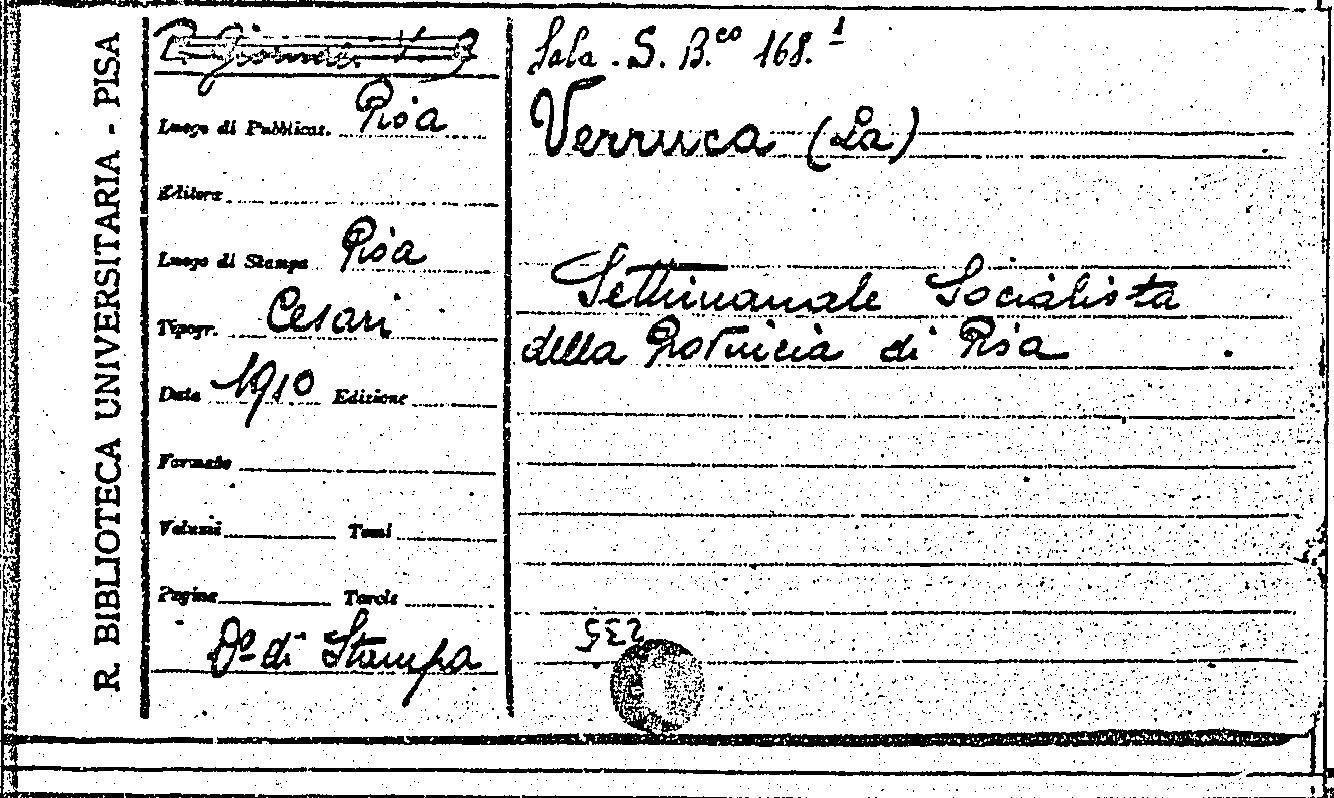 R. BIBLIOTECA UNIVERSITARIA - PISA
Luogo di Pubblicaz. Pisa
Editore
Luogo di Stampa Pisa
Tipogr. Cesari
Data 1910 Edizione
Formato
Volumi Tomi
Pagine Tavole
Do. di Stampa
Sala. S. B.co 168.1
Verruca (La)
Settimanale Socialista
della Provincia di Pisa
235